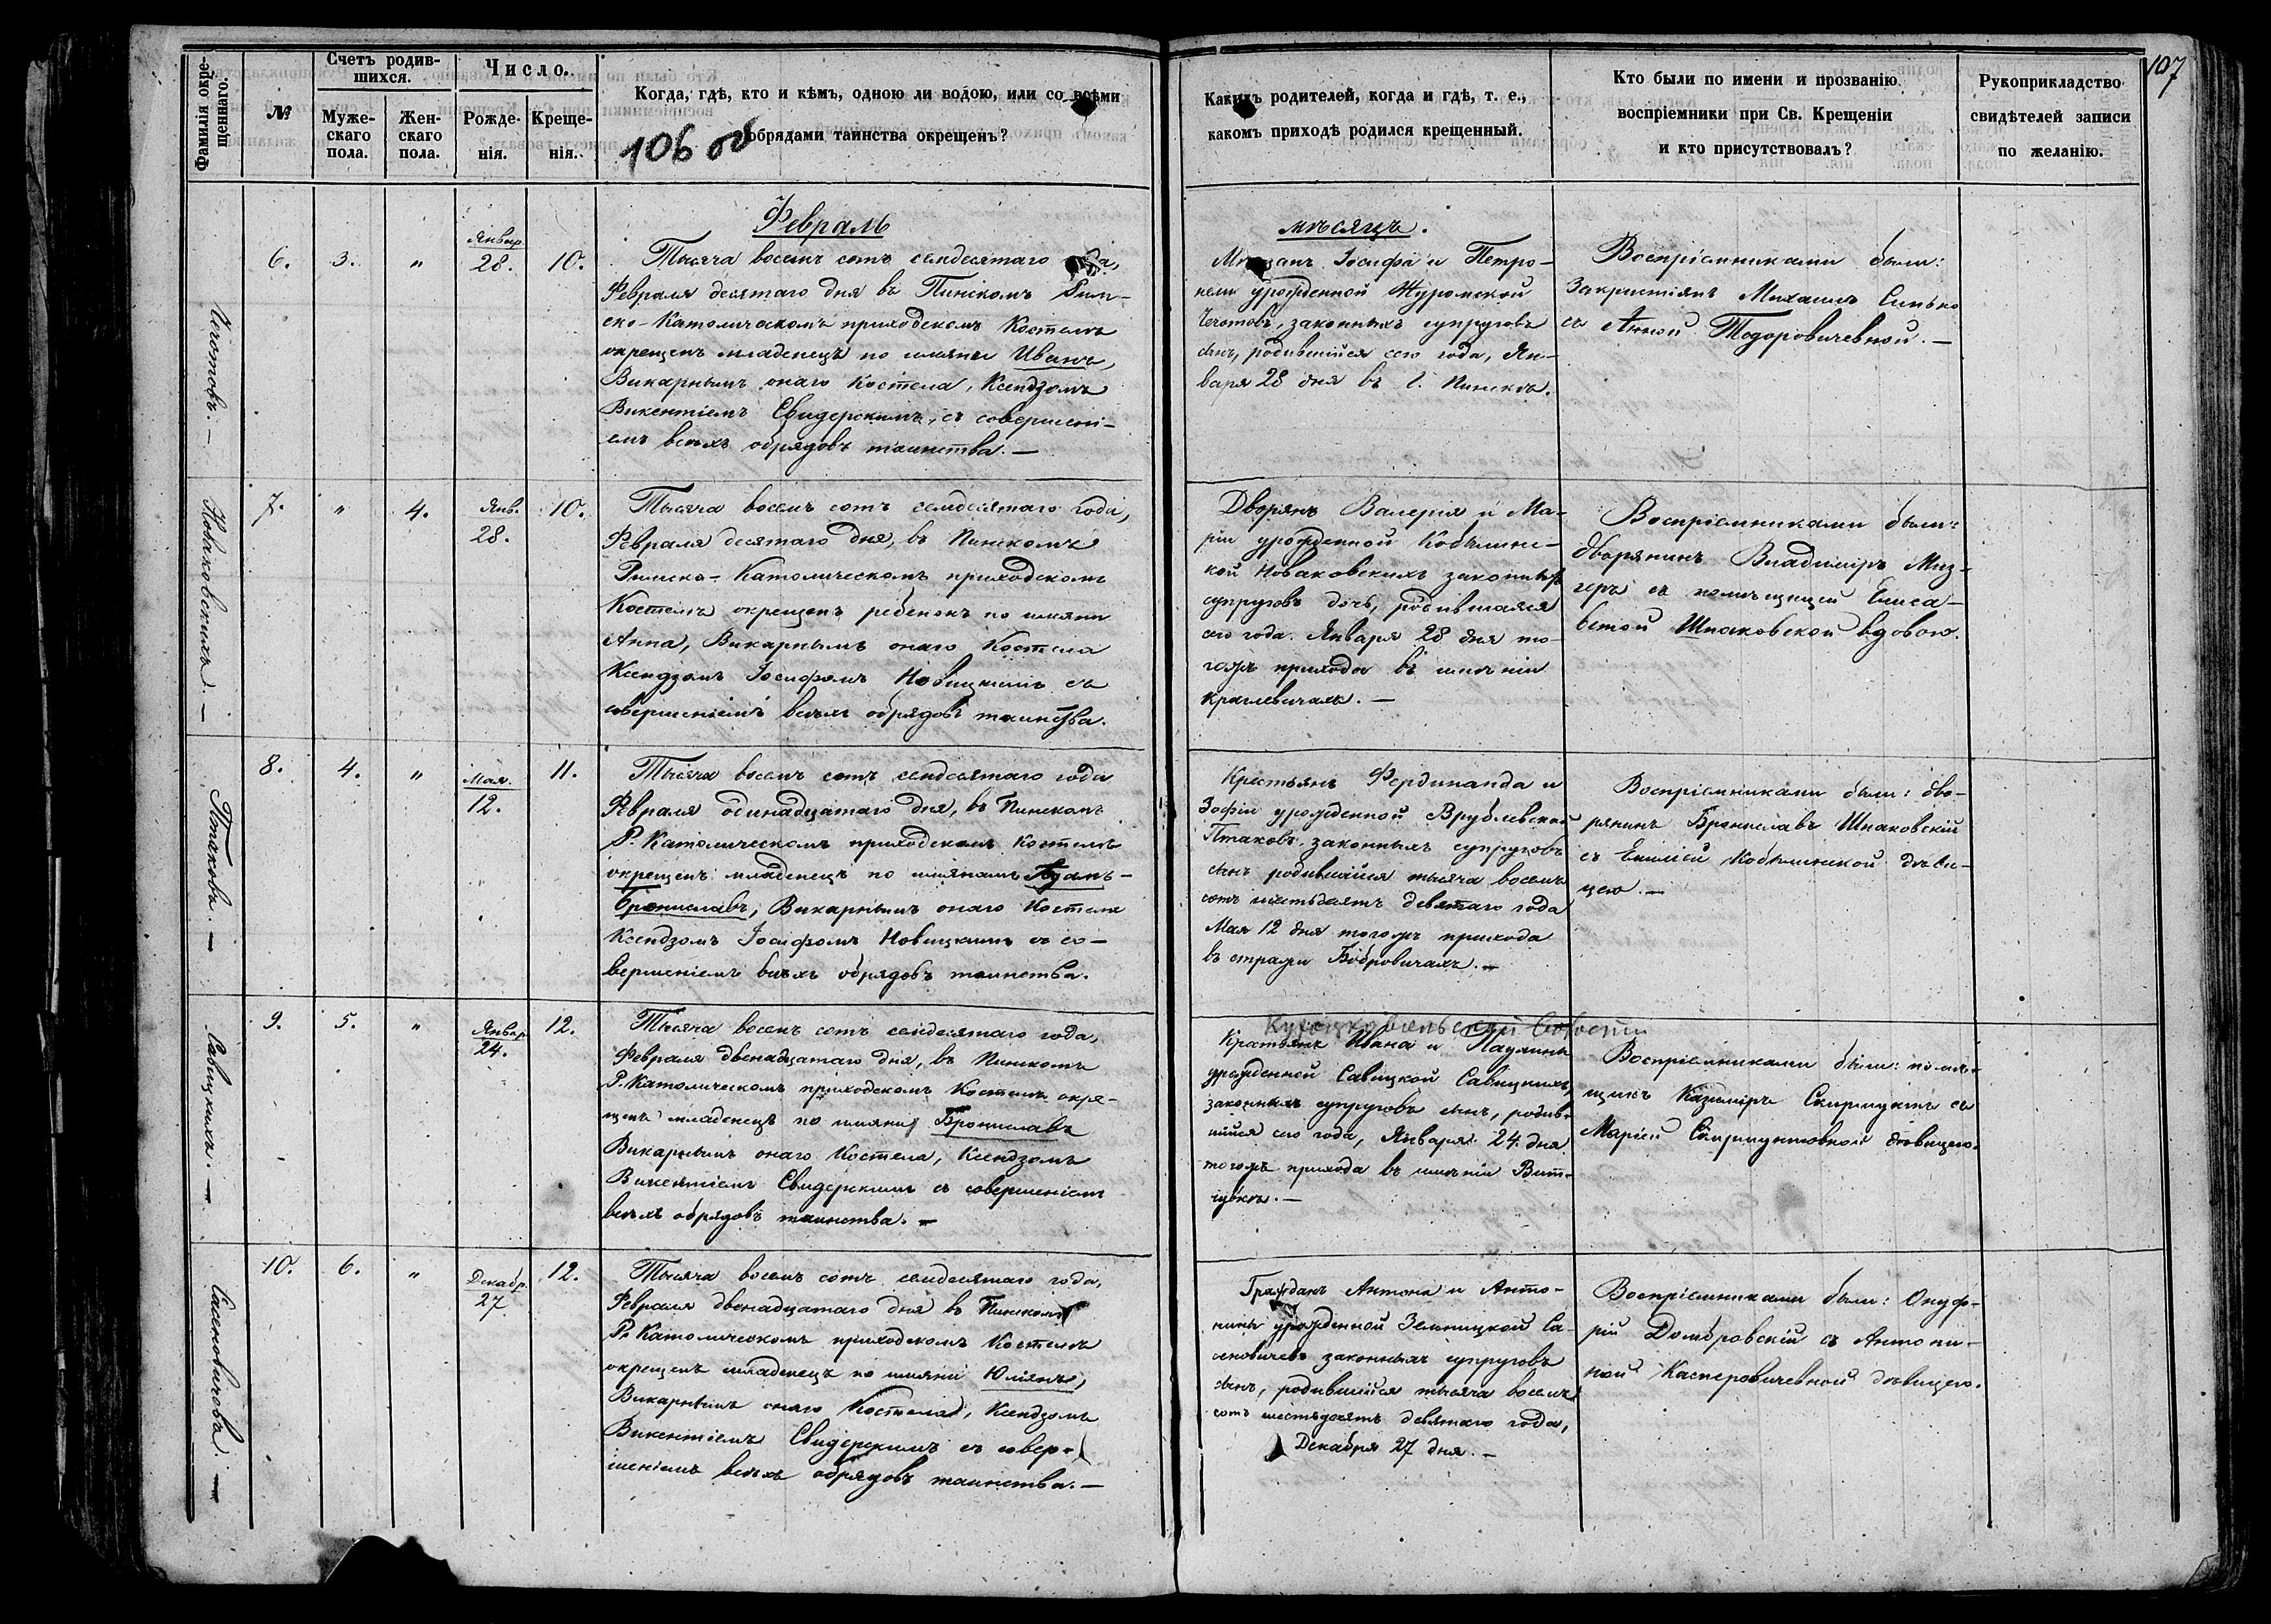 107
Фамилія окре-
щеннаго.
№
Счетъ родив-
шихся.
Муже-
скаго
пола.
Жен-
скаго
пола.
Число.
Рожде-
нія.
Креще-
нія.
Когда, гдѣ, кто и кѣмъ, одною ли водою, или со всѣми
обрядами таинства окрещенъ?
106 об
Какихъ родителей, когда и гдѣ, т. е.,
какомъ приходѣ родился крещенный.
Кто были по имени и прозванію
воспріемники при Св. Крещеніи
и кто присутствовалъ?
Рукоприкладство
свидѣтелей записи
по желанію.
Февраль
мѣсяцъ.
Чечотовъ. —
6.
3.
"
Январ.
28.
10.
Тысяча восемь сотъ семдесятаго года,
Февраля десятаго дня въ Пинскомъ Рим-
ско-Католическомъ приходскомъ Костелѣ
окрещенъ младенецъ по имяни Иванъ,
Викарнымъ онаго Костела, Ксендзомъ
Викентіемъ Свидерскимъ, съ совершені-
емъ всѣхъ обрядовъ таинства. —
Мѣщанъ Іосифа и Петро-
нели урожденной Журомской
Чечотовъ, законныхъ супруговъ
сынъ, родившійся сего года, Ян-
варя 28 дня въ г. Пинскѣ.
Воспріемниками были:
Закристіянъ Михаилъ Синько
съ Анной Тодоровичевной. —
Новаковскихъ. —
7.
"
4.
Янв.
28.
10.
Тысяча восемь сотъ семдесятаго года,
Февраля десятаго дня, въ Пинскомъ
Римско-Католическомъ приходскомъ
Костелѣ окрещенъ ребенокъ по имяни
Анна, Викарнымъ онаго Костела
Ксендзомъ Іосифомъ Новицкимъ съ
совершеніемъ всѣхъ обрядовъ таинства.
Дворянъ Валерія и Ма-
ріи урожденной Кобылинс-
кой Новаковскихъ законныхъ
супруговъ дочь, родившаяся
сего года. Января 28 дня то-
гожъ прихода въ имѣніи
Кралевичахъ. —
Воспріемниками были:
дворянинъ Владиміръ Миз-
геръ съ помѣщицей Елиса-
ветой Шпаковской вдовою.
Птаковъ. —
8.
4.
"
Мая.
12.
11.
Тысяча восемь сотъ семдесятаго года
Февраля одинадцатаго дня, въ Пинскомъ
Р. Католическомъ приходскомъ Костелѣ
окрещенъ младенецъ по имянамъ Адамъ-
Брониславъ, Викарнымъ онаго Костела
Ксендзомъ Іосифомъ Новицкимъ съ со-
вершеніемъ всѣхъ обрядовъ таинства.
Крестьянъ Фердинанда и
Зофіи урожденной Врублевской
Птаковъ законныхъ супруговъ
сынъ родившійся тысяча восемь
сотъ шестьдесятъ девятаго года
Мая 12 дня тогожъ прихода
въ стражи Бобровичахъ. —
Воспріемниками были: дво-
рянинъ Брониславъ Шпаковскій
съ Емиліей Кобылинской дѣви-
цею. —
Савицкихъ. —
9.
5.
"
Январ
24.
12.
Тысяча восемь сотъ семдесятаго года,
Февраля двенадцатаго дня, въ Пинскомъ
Р. Католическомъ приходскомъ Костелѣ окре-
щенъ младенецъ по имяни Брониславъ
Викарнымъ онаго Костела, Ксендзомъ
Викентіемъ Свидерскимъ съ совершеніемъ
всѣхъ обрядовъ таинства. —
Волости
Крестьянъ Ивана и Паулины
урожденной Савицкой Савицкихъ,
законныхъ супруговъ сынъ, родив-
шійся сего года, Января 24. дня
тогожъ прихода въ имѣніи Вит-
Воспріемниками были: помѣ-
щикъ Казиміръ Скирмунтъ съ
Маріей Скирмунтовной дѣвицею.
Саченовичовъ. —
10.
6.
"
Декабр.
27
12.
Тысяча восемь сотъ семдесятаго года,
Февраля двенадцатаго дня въ Пинскомъ
Р. Католическомъ приходскомъ Костелѣ
окрещенъ младенецъ по имяни Юліянъ,
Викарнымъ онаго Костела, Ксендзомъ
Викентіемъ Свидерскимъ съ совер-
шеніемъ всѣхъ обрядовъ таинства. —
Гражданъ Антона и Анто-
нины урожденной Зельницкой Са-
законныхъ супруговъ
сынъ, родившійся тысяча восемь
сотъ шестьдесятъ девятаго года,
Декабря 27 дня. —
Воспріемниками были: Онуф-
рій Домбровскій съ Антони-
ной Касперовичевной дѣвицею.